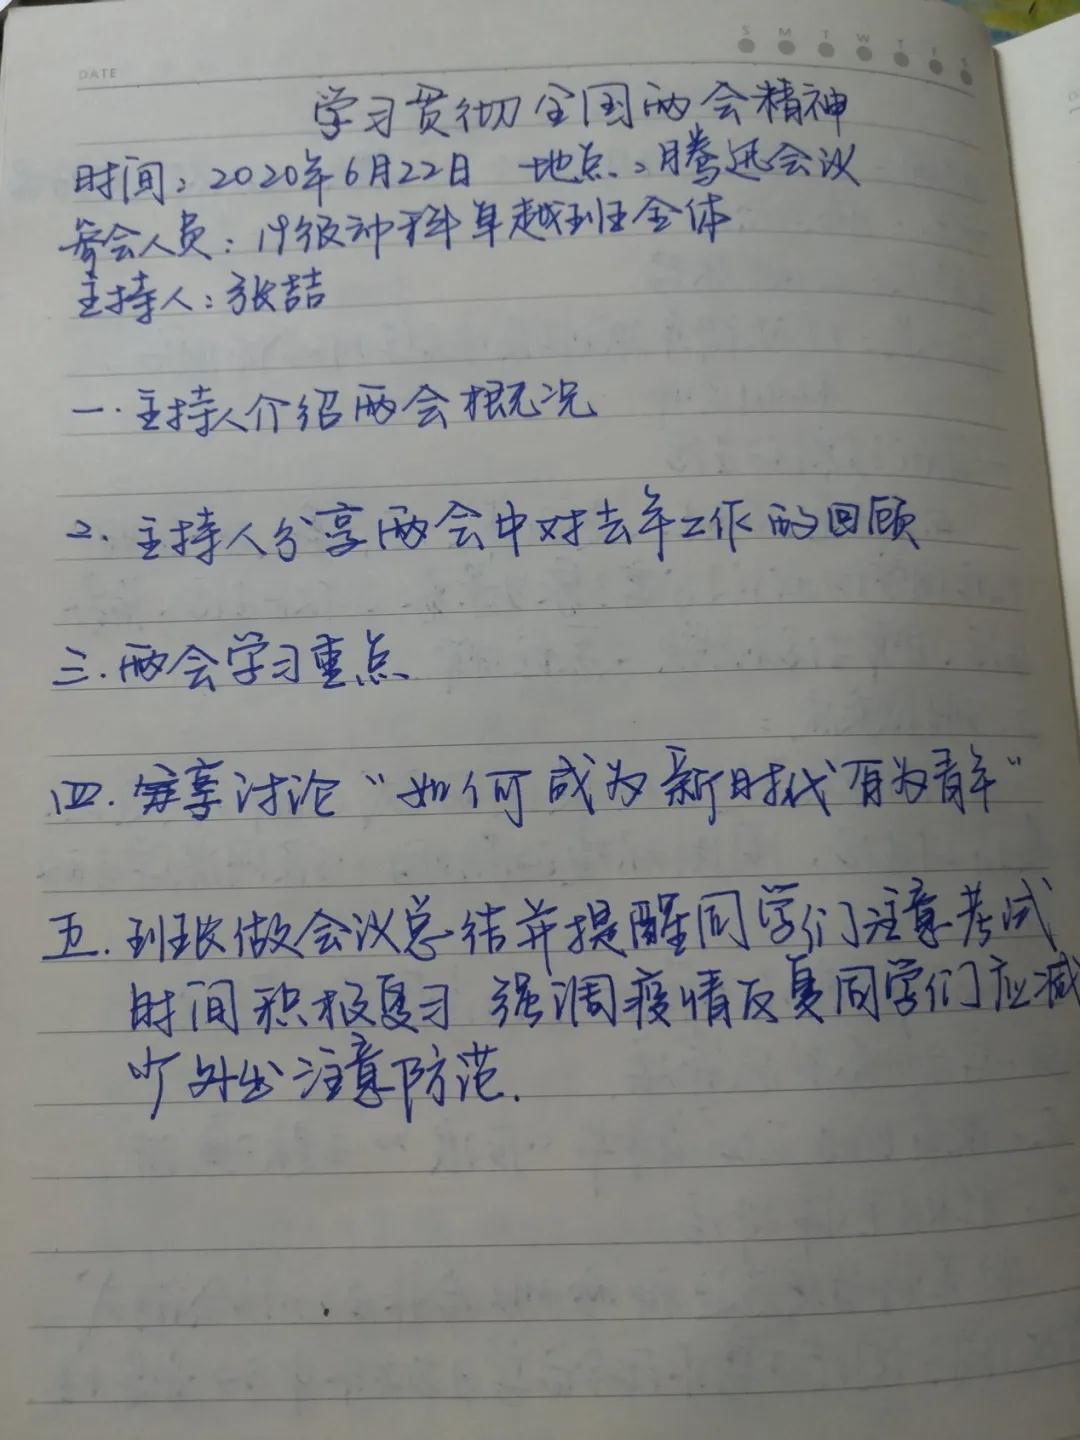 DATE
S M T W T F S
学习贯彻全国两会精神
时间：2020年6月22日 地点：腾迅会议
参会人员：19级种科卓越班全体
主持人：张喆
一.主持人介绍两会概况
2.主持人分享两会中对去年工作的回顾
三.两会学习重点
四.享讨论“如何成为新时代有为青年”
五.班长做会议总结并提醒同学们注意考试
时间积极复习 强调疫情反复同学们应减
少外出注意防范.